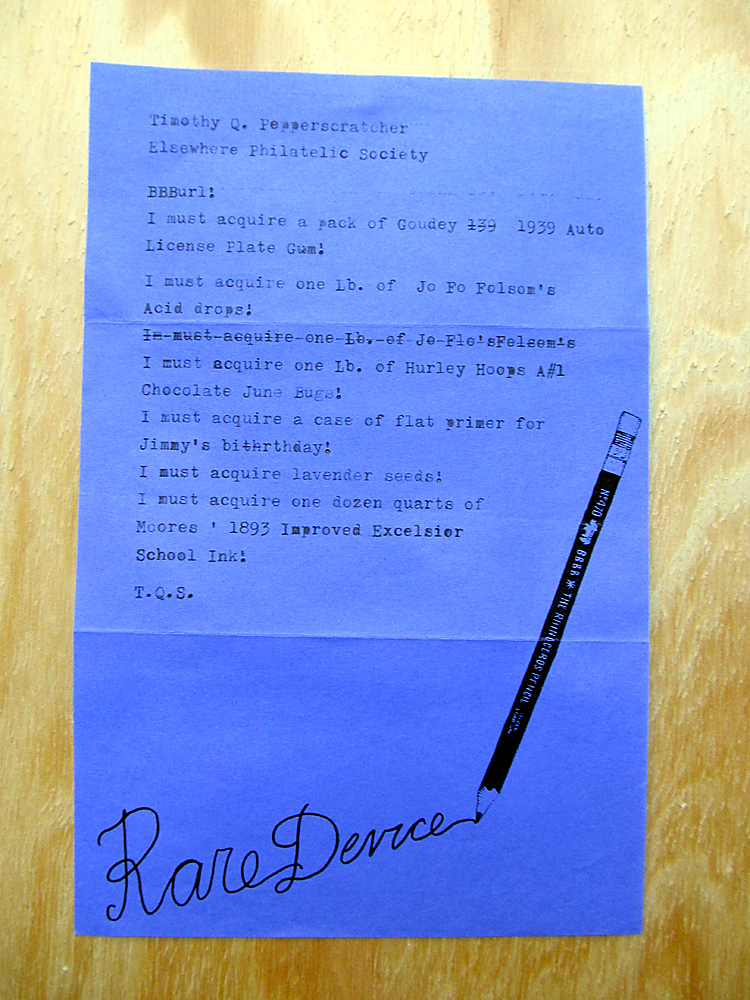 Timothy Q. Pepperscratcher
Elsewhere Philatelic Society
BBBurl!
I must acquire a pack of Goudey 139 1939 Auto
License Plate Gum!
I must acquire one Lb. of Jo Fo Folsom's
Acid drops!
In must acquire one Lb. of Jo Flo'sFolsom's
I must acquire one Lb. of Hurley Hoops A#1
Chocolate June Bugs!
I must acquire a case of flat primer for
Jimmy's bithrthday!
I must acquire lavender seeds!
I must acquire one dozen quarts of
Moores ' 1893 Improved Excelsior
School Ink!
T.Q.S.
Nº470 BBBB * THE RHINOCEROS PENCIL
Rare Device